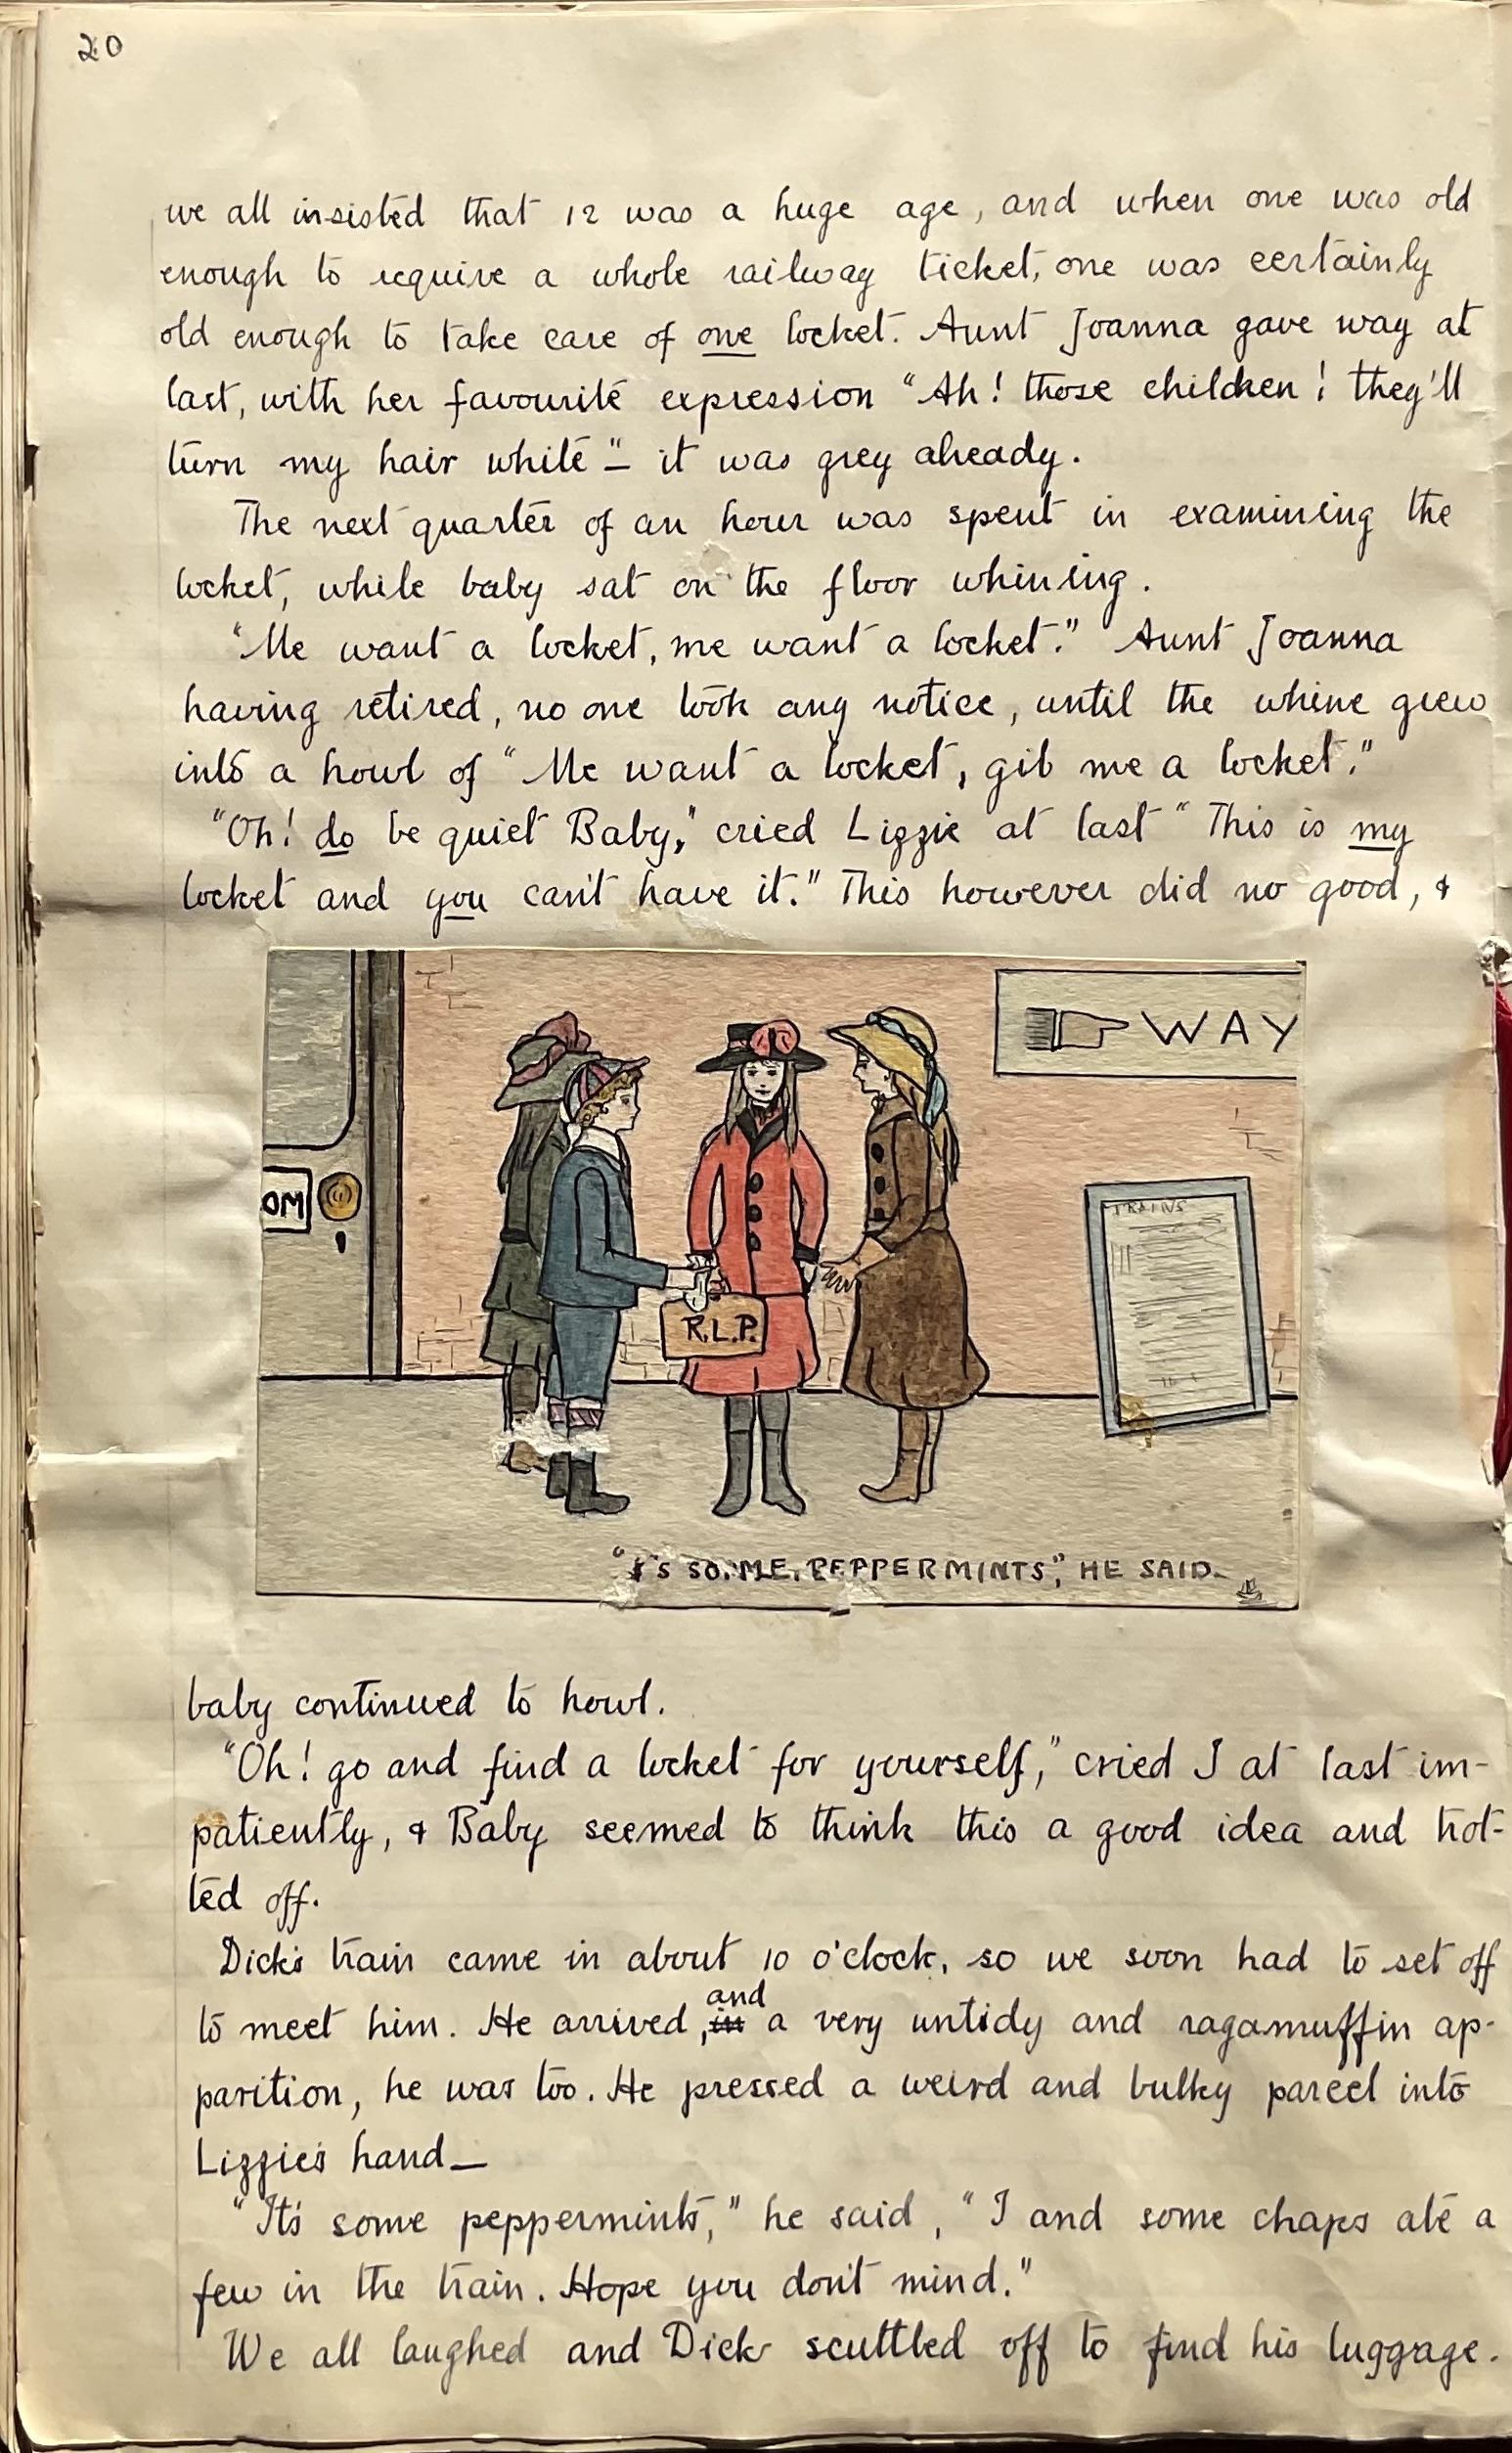 20
we all insisted that 12 was a huge age, and when one was old
enough to require a whole railway ticket, one was certainly
old enough to take care of one locket. Aunt Joanna gave way at
last, with her favourite expression "Ah! those children! they'll
turn my hair white" – it was grey already.
The next quarter of an hour was spent in examining the
locket, while baby sat on the floor whining.
"Me want a locket, me want a locket." Aunt Joanna
having retired, no one took any notice, until the whine grew
into a howl of "Me want a locket, gib me a locket."
"Oh! do be quiet Baby," cried Lizzie at last "This is my
locket and you can't have it." This however did no good, &
WAY
OM
TRAINS
R.L.P.
"It's SOME PEPPERMINTS", HE SAID–
baby continued to howl.
"Oh! go and find a locket for yourself," cried I at last im-
patiently, & Baby seemed to think this a good idea and trot-
ted off.
Dick's train came in about 10 o'clock, so we soon had to set off
and
to meet him. He arrived, in a very untidy and ragamuffin ap-
parition, he was too. He pressed a weird and bulky parcel into
Lizzie's hand –
"It's some peppermints," he said, "I and some chaps ate a
few in the train. Hope you don't mind."
We all laughed and Dick scuttled off to find his luggage.